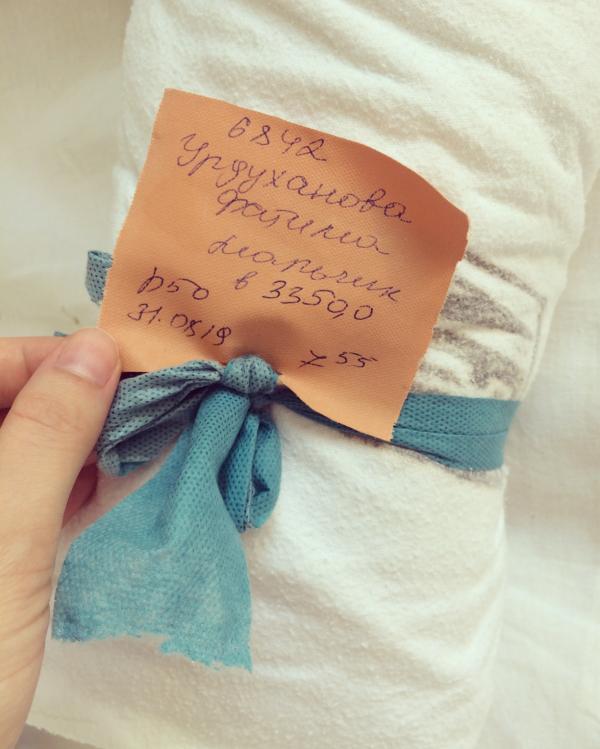 6842
Урдуханова
Фатима
мальчик
р50 в 3350,0
31.08.19 7 55